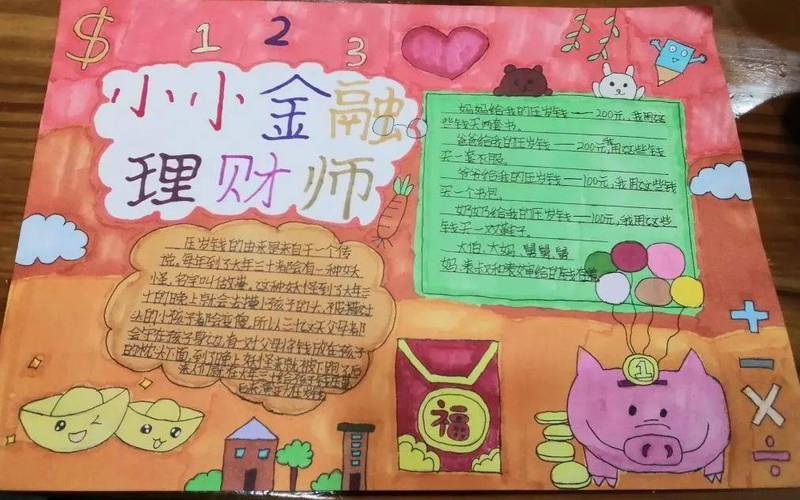 $ 1 2 3
小小金融
理财师
妈妈给我的压岁钱——200元,我用这
些钱买两套书。
爸爸给我的压岁钱——200元,我用这些钱
买一套衣服。
爷爷给我的压岁钱——100元,我用这些钱
买一个书包。
奶奶给我的压岁钱——100元,我用这些
钱买一双鞋子。
大伯、大妈、舅舅、舅
妈、
压岁钱的由来是来自于一个传
说,每年到了大年三十都会有一种妖
怪,名字叫做祟,这种妖怪到了大年三
十的晚上就会去摸小孩子的头,被摸过
头的小孩子都会变傻,所以三十这天父母都
会守在孩子身边,有一对父母将钱放在孩子
的枕头下面,到了晚上
福
1
+
-
×
÷